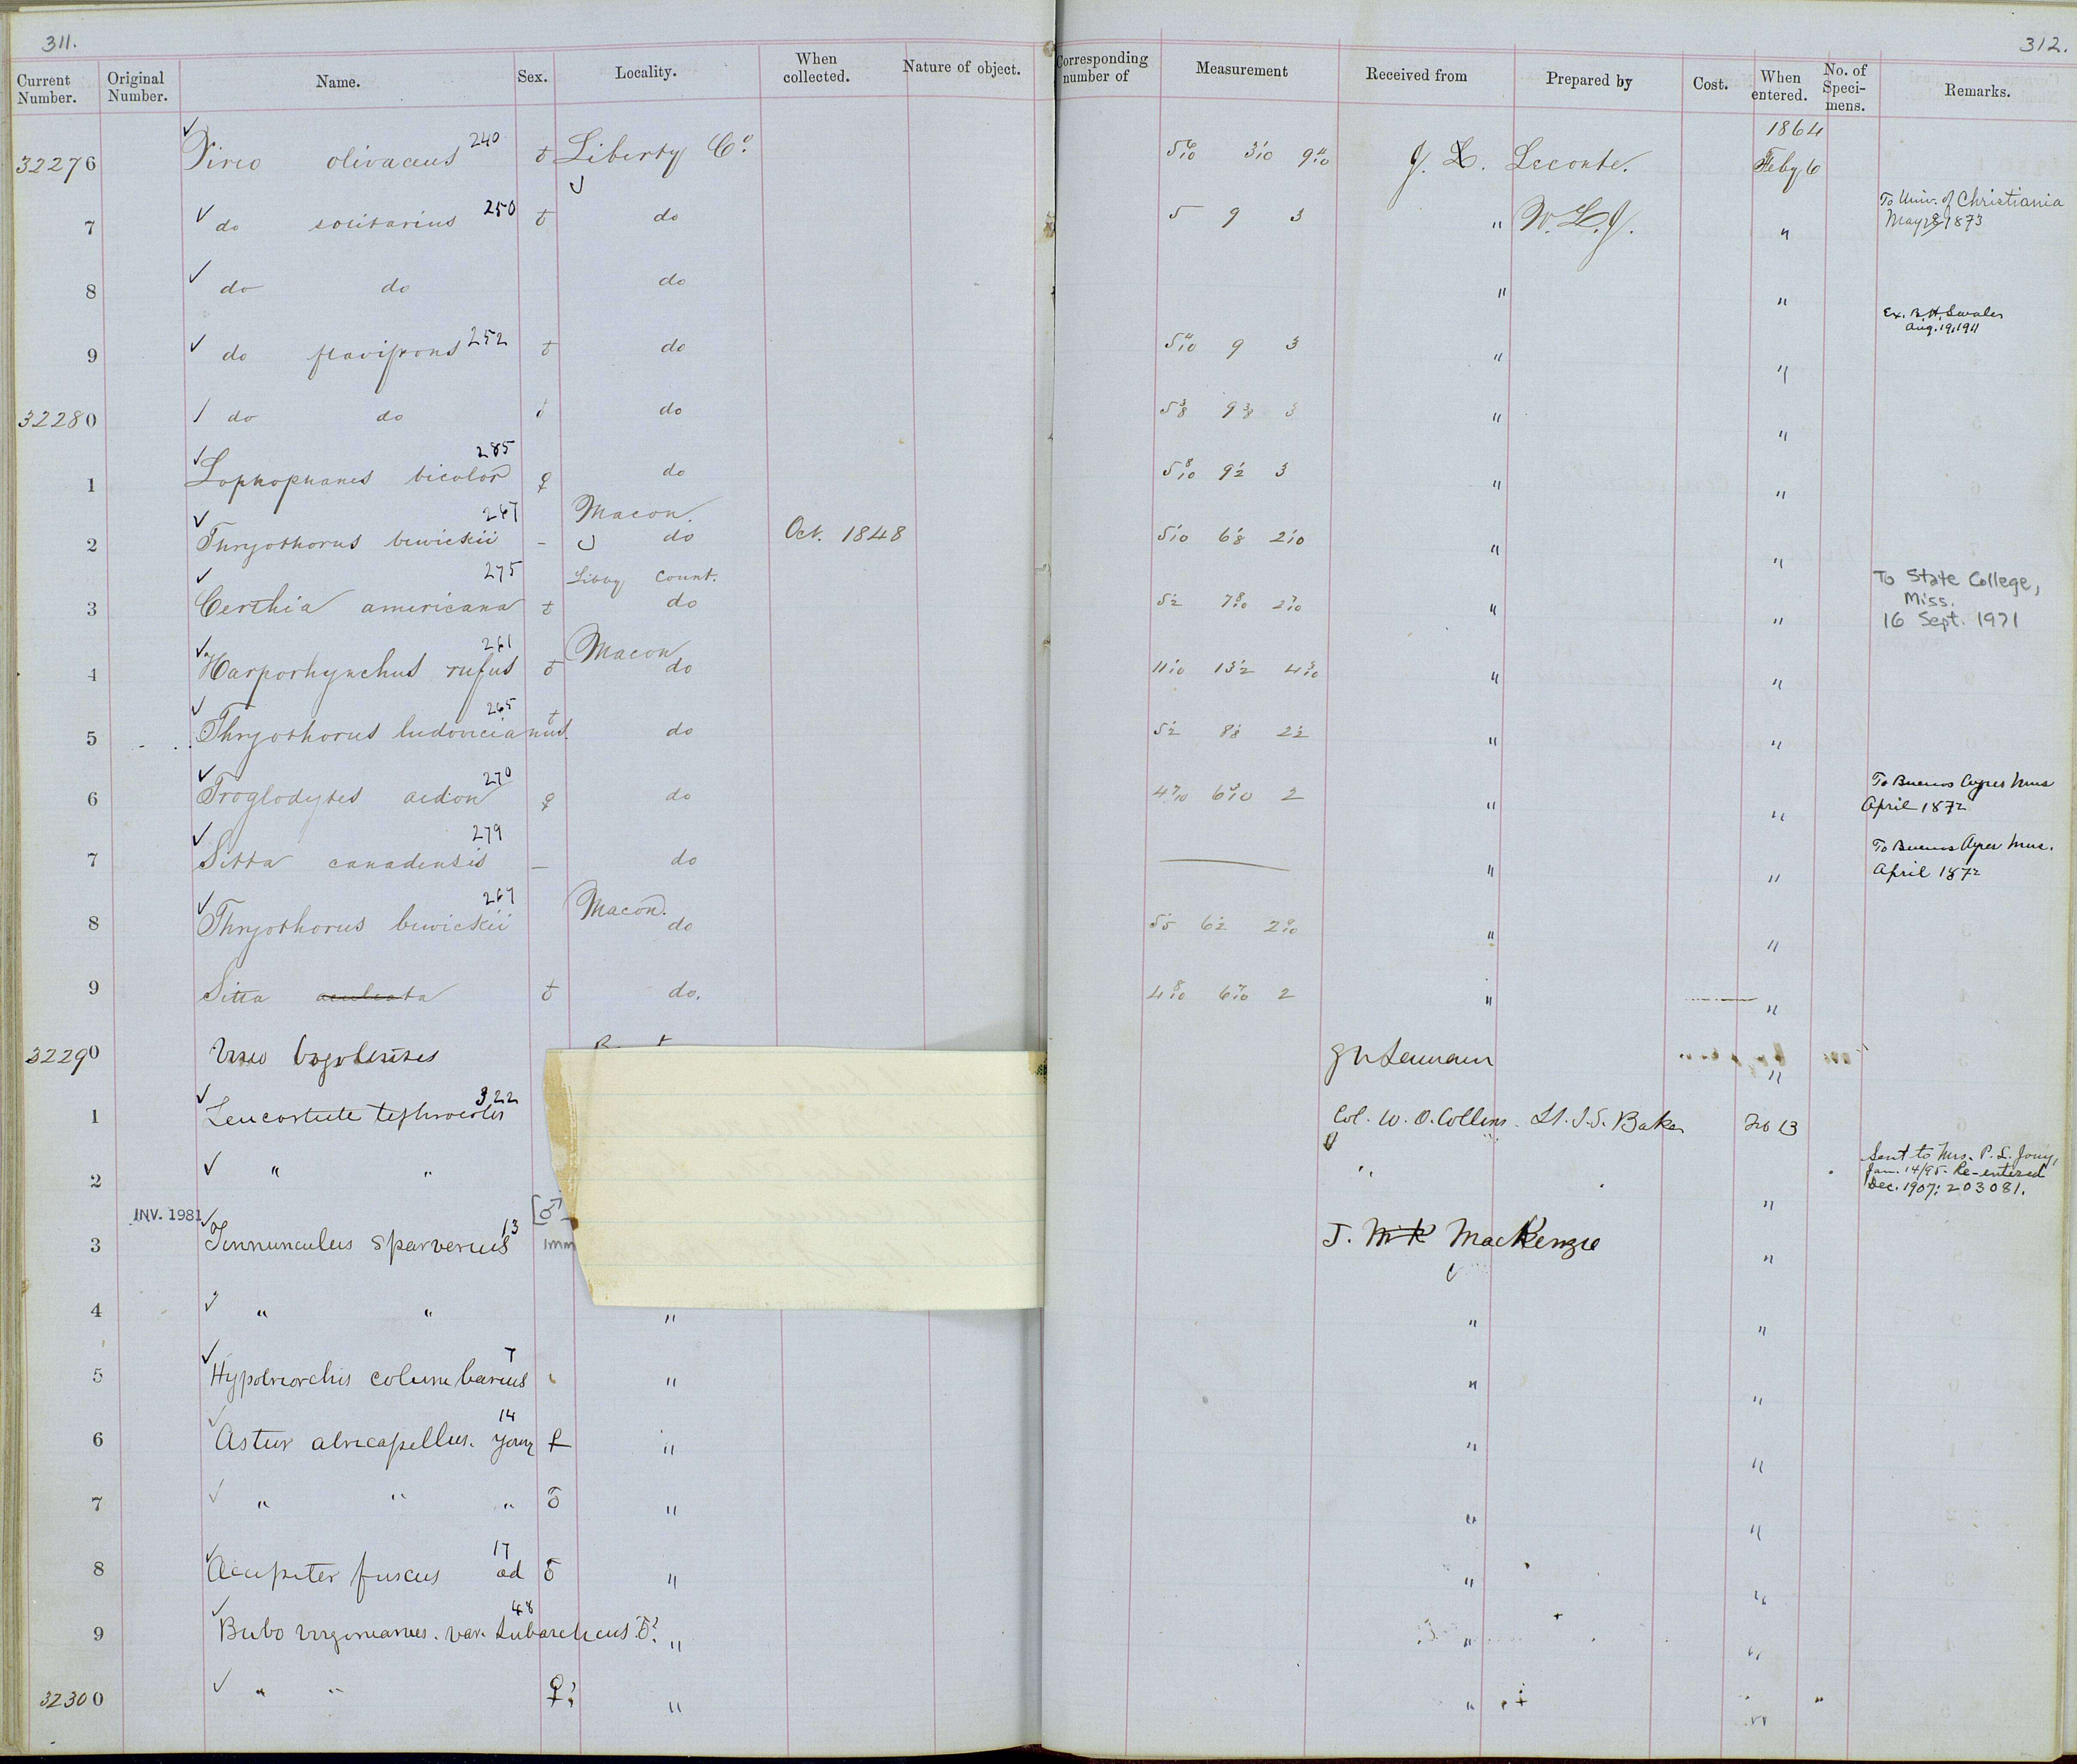 311.
312.
Current Number. Original Number. Name. Sex. Locality. When collected. Nature of object. Corresponding number of Measurement Received from Prepared by Cost. When entered. No. of Speci-mens. Remarks.
1864
32276 Vireo olivaceus 240 ♂ Liberty Co. J. L. Leconte. Feby 6
7 do solitarius 250 ♂ do 5 9 3 " W.L.J. " To Univ. of Christiania May 1873
8 do do do " "
9 do flavifrons 252 ♂ do 9 3 " " Ex. B.H. Swales Aug. 19, 1911
32280 do do ♂ do 5 3/8 9 3/8 3 " "
1 Lophophanes bicolor 285 ♀ do 5 8/10 9 1/2 3 " "
Macon.
2 Thryothorus bewickii 267 - do Oct. 1848 5 1/10 6 1/8 2 1/10 " "
Libty Count.
3 Certhia americana 275 ♂ do 5 1/2 " " To State College, Miss. 16 Sept. 1971
Macon
4 Harporhynchus rufus 261 ♂ do 11 1/10 13 1/2 " "
5 Thryothorus ludovicianus. 265 ♂ do 5 1/2 8 1/8 2 1/2 " "
6 Troglodytes aedon 270 ♀ do 2 " " To Buenos Ayres Mus April 1872
7 Sitta canadensis 279 — do " " To Buenos Ayres Mus. April 1872
Macon.
8 Thryothorus bewickii 267 do 6 1/2 " "
9 Sitta aculeata ♂ do. 4 8/10 6 7/10 2 " "
32290 Vireo "
1 Leucosticte tephrocotis 322 Col. W. O. Collins. Lt. J.S. Baker
2 " " " " Sent to Mrs. P. L. Jouy, Jan. 14/95. Re-entered Dec. 1907: 203081.
INV. 1981
3 Tinnunculus sparverius 13 [♂ imm J. MacKenzie "
4 " " " " "
5 Hypotriorchis columbarius 7 " " "
6 Astur atricapillus. young 14 ♀ " " "
7 " " " ♂ " " "
8 Accipiter fuscus ad 17 ♂ " " "
9 Bubo virginianus. var. subarcticus 48 ♂? " " "
32300 " " ♀? " " "